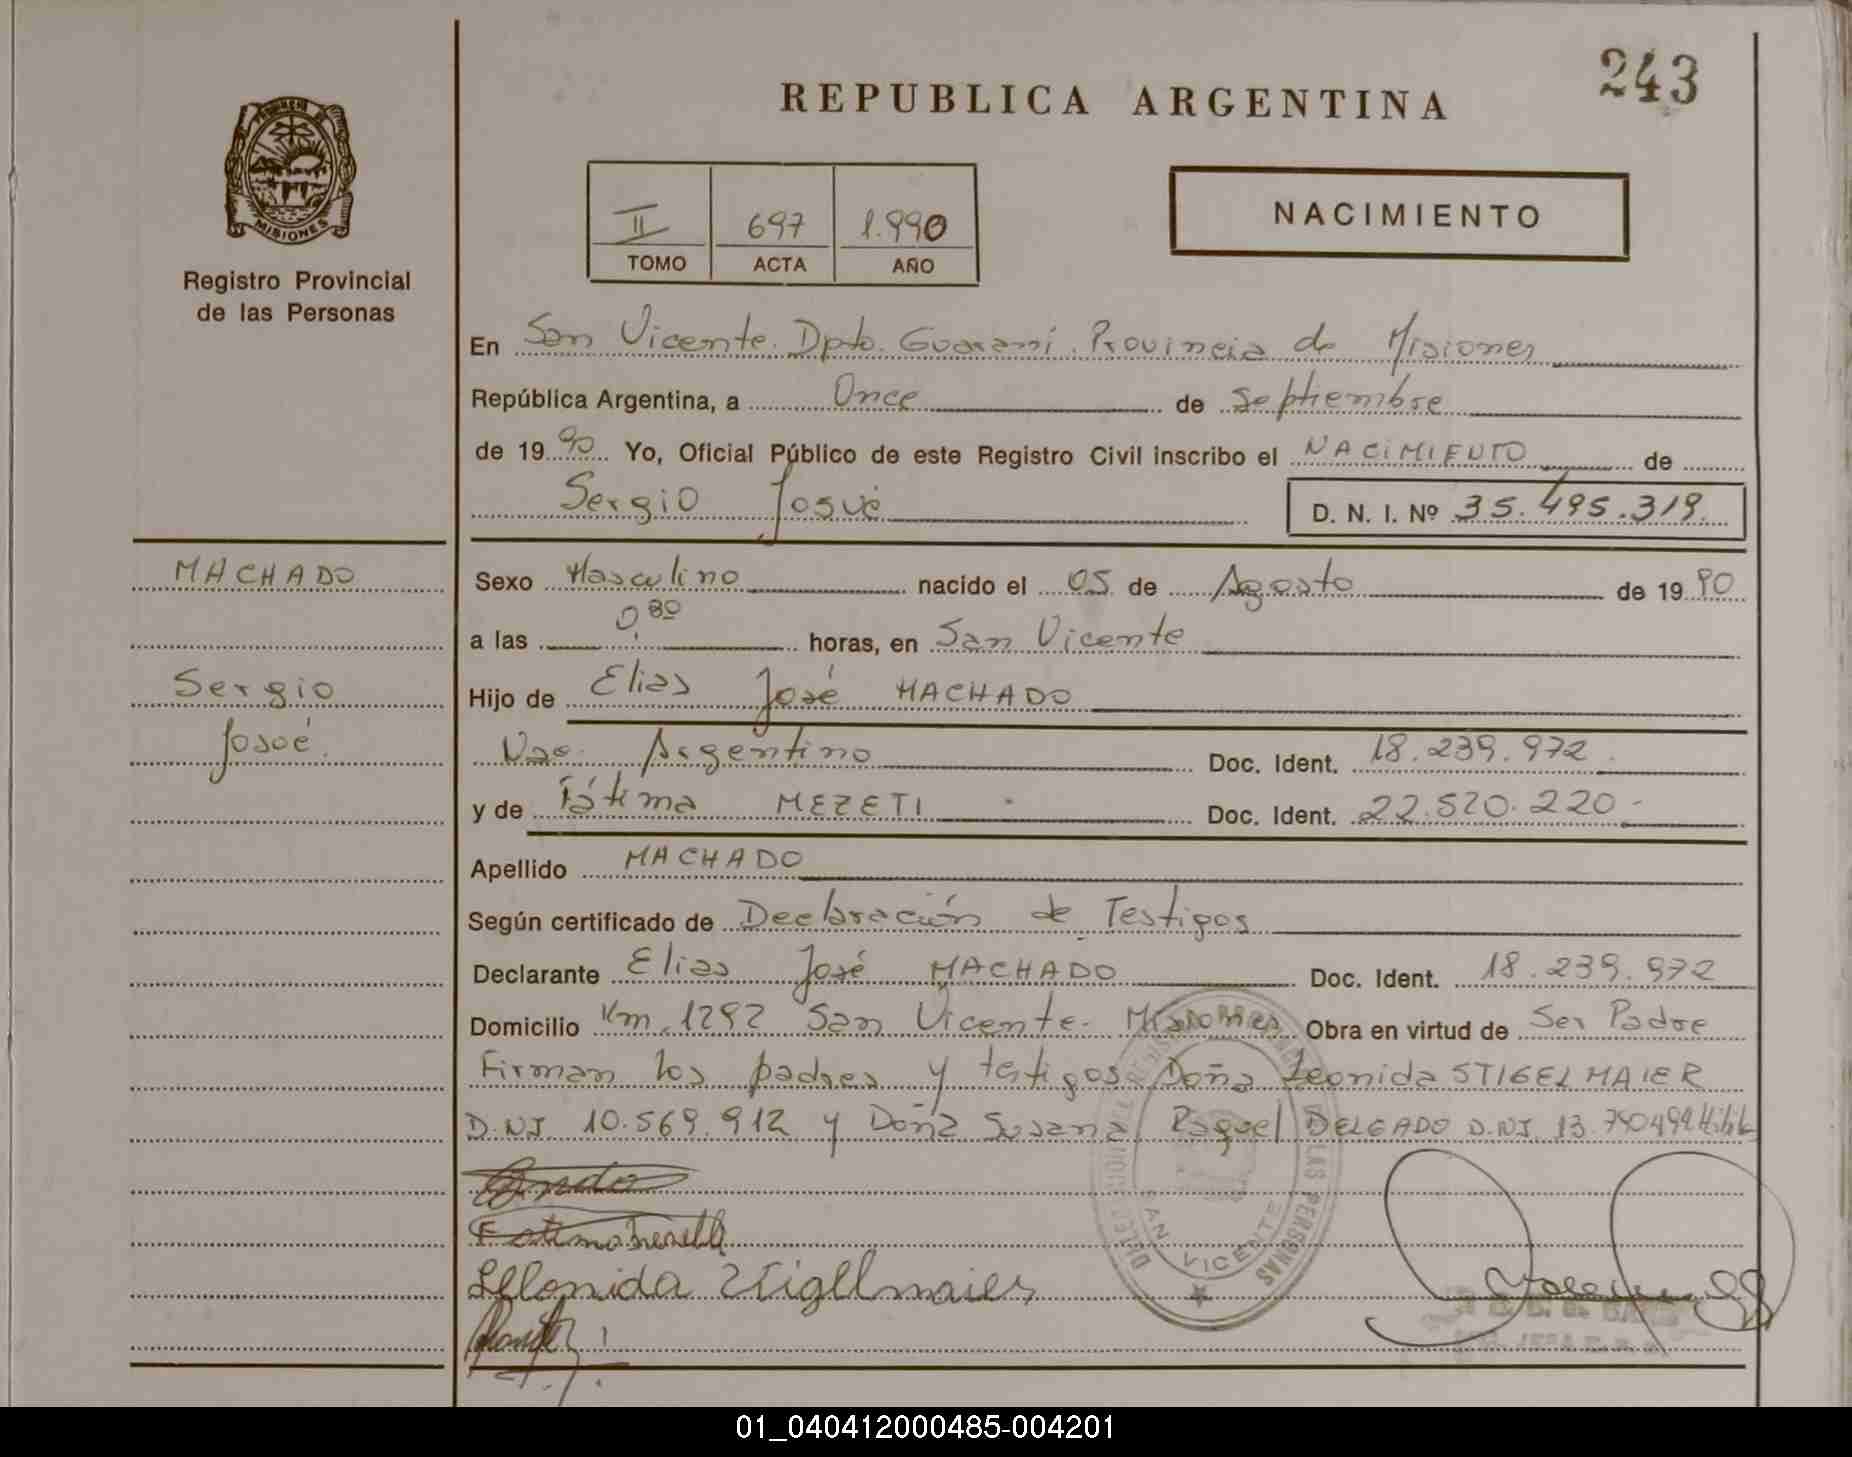 243
REPUBLICA ARGENTINA
MISIONES
Registro Provincial
de las Personas
II 697 1.990
TOMO ACTA AÑO
NACIMIENTO
En San Vicente. Dpto. Guaraní. Provincia de Misiones
República Argentina, a Once de septiembre
de 1990 Yo, Oficial Público de este Registro Civil inscribo el NACIMIENTO de
Sergio Josué D. N. I. Nº 35.495.319
MACHADO
Sergio
Josué.
Sexo Masculino nacido el 05 de Agosto de 1990
a las horas, en San Vicente
Hijo de Elias José MACHADO
Nac. Argentino Doc. Ident. 18.239.972
y de Fátima MEZETI Doc. Ident. 22.520.220-
Apellido MACHADO
Según certificado de Declaración de Testigos
Declarante Elias José MACHADO Doc. Ident. 18.239.972
Domicilio Km. 1292 San Vicente- Misiones Obra en virtud de Ser Padre
Firman los padres y testigos Doña Leonida STIGELMAIER
D.NI. 10.569.912 y Doña Susana Raquel DELGADO D.NI. 13.
DE LAS PERSONAS
SAN VICENTE
01_040412000485-004201